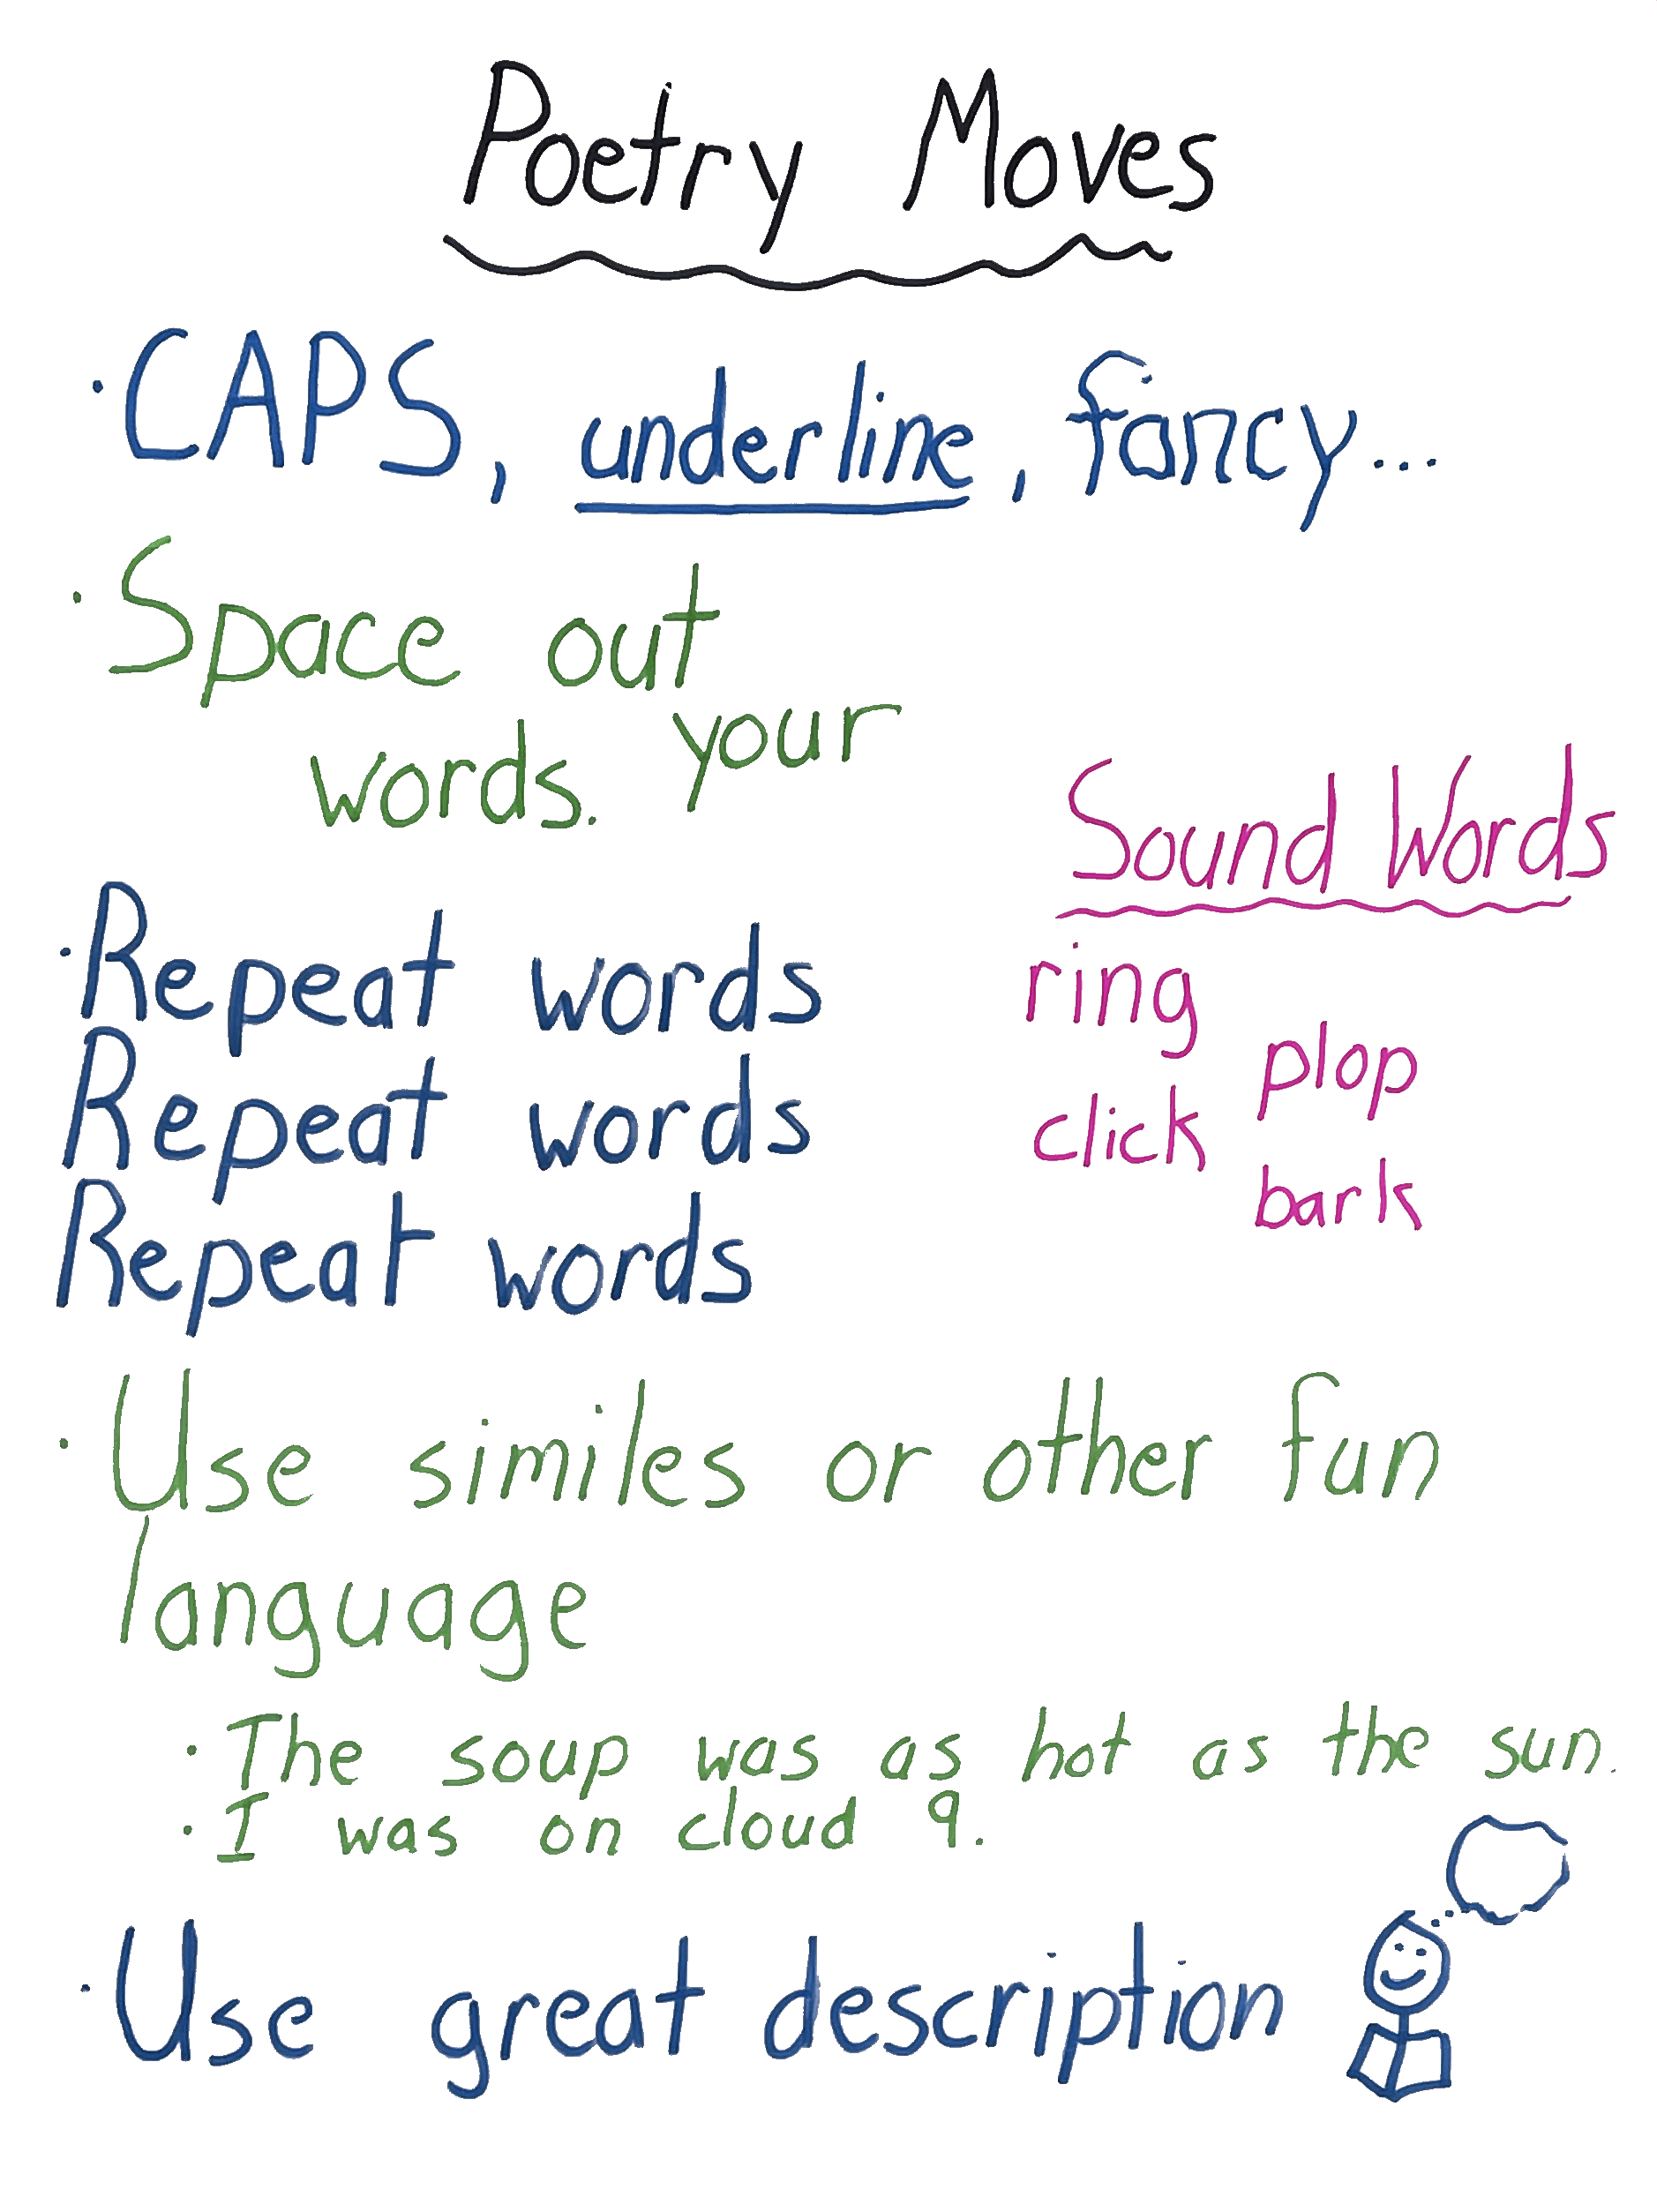 Poetry Moves
· CAPS, underline, fancy...
· Space out
your
words.
Sound Words
· Repeat words
Repeat words
Repeat words
ring
plop
click
bark
· Use similes or other fun
language
· The soup was as hot as the sun.
· I was on cloud 9.
· Use great description